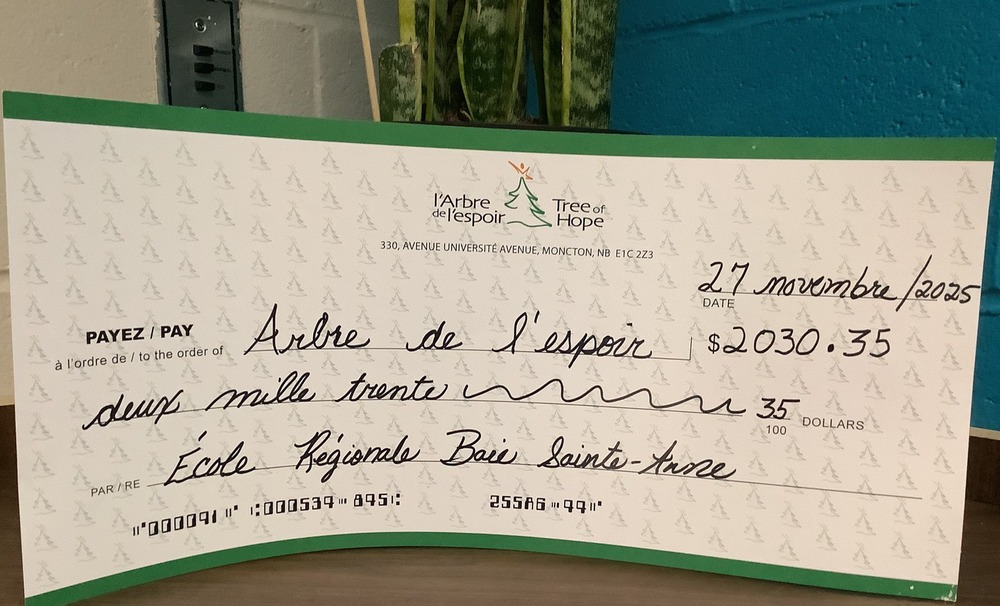 l'Arbre de l'espoir
Tree of Hope
330, AVENUE UNIVERSITÉ AVENUE, MONCTON, NB E1C 2Z3
27 novembre/2025
DATE
PAYEZ / PAY
à l'ordre de / to the order of
Arbre de l'espoir
$2030.35
deux mille trente 35
100 DOLLARS
PAR / RE École Régionale Baie Sainte-Anne
⑈000091⑈ ⑆000534⑉845⑆ 255A6⑉44⑈